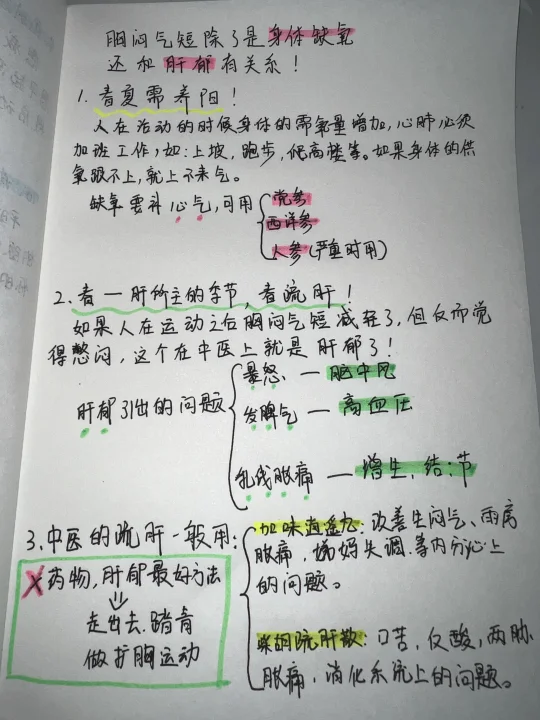 胸闷气短除了是身体缺氧
还和肝郁有关系！
1. 春夏需养阳！
人在活动的时候身体的需氧量增加，心肺必须
加班工作，如：上坡，跑步，爬高楼等。如果身体的供
氧跟不上，就上不来气。
缺氧要补心气，可用
党参
西洋参
人参（严重时用）
2. 春—肝所主的季节，春疏肝！
如果人在运动之后胸闷气短减轻了，但反而觉
得憋闷，这个在中医上就是肝郁了！
肝郁引出的问题
暴怒 — 脑中风
发脾气 — 高血压
乳线胀痛 — 增生、结节
3. 中医的疏肝一般用：
加味逍遥丸：改善生闷气、两窝
胀痛，情妈失调等内分沁上
的问题。
柴胡疏肝散：口苦，反酸，两胁
胀痛，消化系统上的问题。
X药物，肝郁最好方法
⇓
走出去、踏青
做扩胸运动